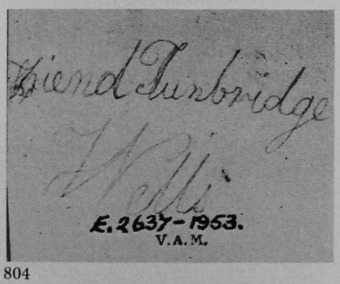 Friend Tunbridge
Wells
E. 2637-1953.
V.A.M.
804